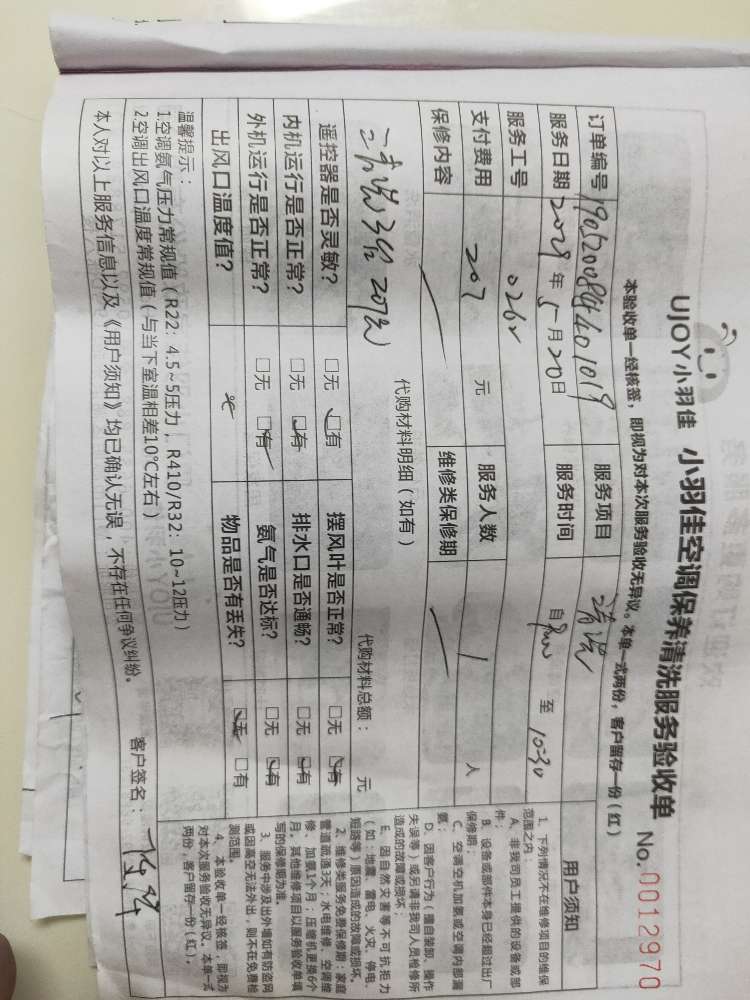 UJOY小羽佳 小羽佳空调保养清洗服务验收单 No.0012970
本验收单一经核签，即视为对本次服务验收无异议。本单一式两份，客户留存一份（红）
订单编号 服务项目 清洗
服务日期 年 5 月 20 日 服务时间 自 至 10:30
服务工号
支付费用 207 元 服务人数 1 人
保修内容 维修类保修期
代购材料明细（如有） 代购材料总额： 元
清洗3台 207元
遥控器是否灵敏？ □无 □有 摆风叶是否正常？ □无 □有
内机运行是否正常？ □无 □有 排水口是否通畅？ □无 □有
外机运行是否正常？ □无 □有 氨气是否达标？ □无 □有
出风口温度值？ 物品是否有丢失？ □无 □有
温馨提示：
1.空调氨气压力常规值（R22：4.5~5压力，R410/R32：10~12压力）
2.空调出风口温度常规值（与当下室温相差10℃左右）
本人对以上服务信息以及《用户须知》均已确认无误，不存在任何争议纠纷。 客户签名：
用户须知
1、下列情况不在维修项目的维保
范围之内：
A、非我司员工提供的设备或部
件；
B、设备或部件本身已经超过出厂
保修期；
C、空调空机加氨或空调内部漏
氨；
D、因客户行为（擅自装卸、操作
失误等）或另请非我司人员检修所
造成的故障或损坏；
E、因自然灾害等不可抗拒力
（如：地震、雷电、火灾、停电、
短路等）原因造成的故障或损坏。
2、维修类服务免费保修期：家庭
管道疏通3天；水电维修、空调维
修、加氨1个月；压缩机更换6个
月。其他维修项目以服务验收单填
写的保修期为准。
3、服务中涉及出外墙如有防盗网
或因高空无法外出，则不在免费检
测范围。
4、本验收单一经核签，即视为
对本次服务验收无异议。本单一式
两份，客户留存一份（红）。